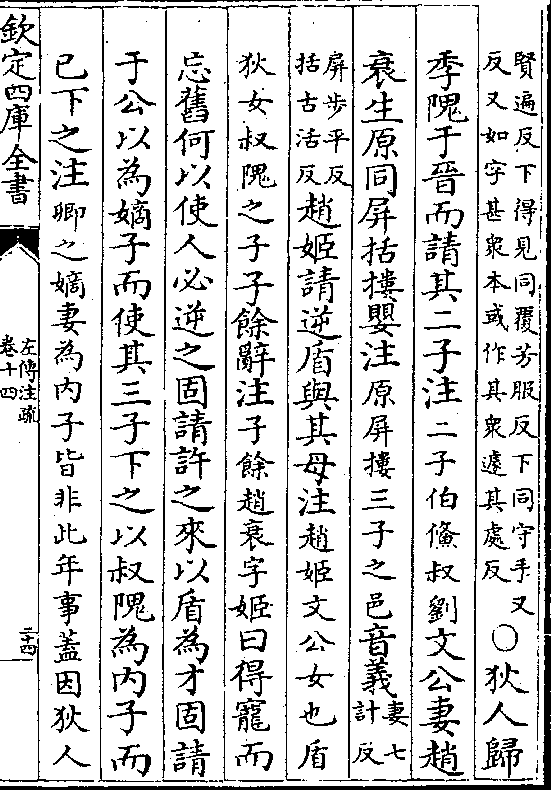 賢遍反下得見同覆芳服反下同守手又
反又如字甚衆本或作其衆遽其處反
○狄人歸
季隗于晉而請其二子注二子伯儵叔劉文公妻趙
衰生原同屏括摟嬰注原屏摟三子之邑音義妻七
計反
屏步平反
括古活反趙姬請逆盾與其母注趙姬文公女也盾
狄女叔隗之子子餘辭注子餘趙衰字姬曰得寵而
忘舊何以使人必逆之固請許之來以盾為才固請
于公以為嫡子而使其三子下之以叔隗為内子而
已下之注卿之嫡妻為内子皆非此年事蓋因狄人
欽定四庫全書
左傳注疏
卷十四
二十四